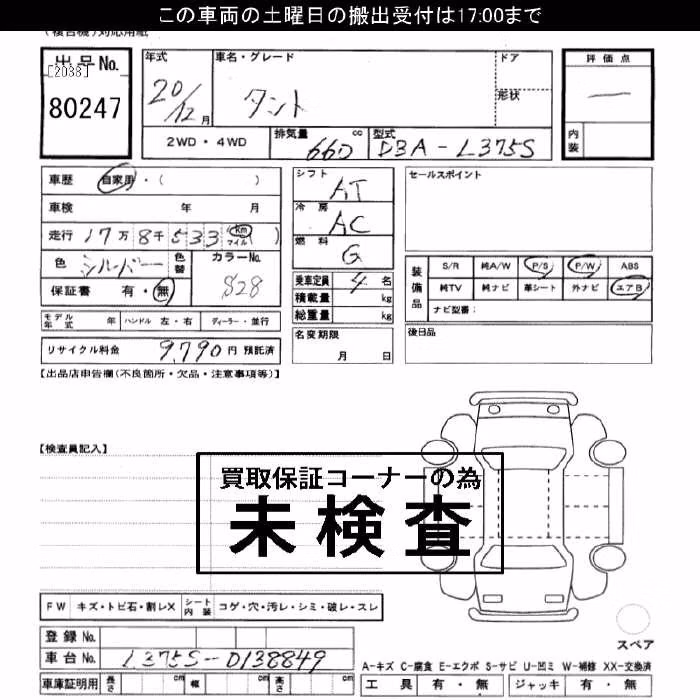 この車両の土曜日の搬出受付は17:00まで
(複合機)対応用紙
出品No. [2038] 80247
年式 20/12月
車名・グレード タント
ドア
形状
評価点 —
内装
2WD・4WD
排気量 660 cc
型式 DBA-L375S
車歴 自家用・( )
車検 年 月
走行 17万8千533 Km マイル ( )
色 シルバー 色替 カラーNo. S28
保証書 有・無
モデル年式 年 ハンドル 左・右 ディーラー・並行
リサイクル料金 9,790円 預託済
シフト AT
冷房 AC
燃料 G
乗車定員 4名
積載量 kg
総重量 kg
名変期限 月 日
セールスポイント
装備品 S/R 純A/W P/S P/W ABS
純TV 純ナビ 革シート 外ナビ エアB
ナビ型番:
後日品
【出品店申告欄(不良箇所・欠品・注意事項等)】
【検査員記入】
買取保証コーナーの為
未検査
FW キズ・トビ石・割レX シート内装 コゲ・穴・汚レ・シミ・破レ・スレ
スペア
登録No.
車台No. L375S-0138849
車庫証明用 長さ cm 幅 cm 高さ cm
A-キズ C-腐食 E-エクボ S-サビ U-凹ミ W-補修 XX-交換済
工具 有・無 ジャッキ 有・無